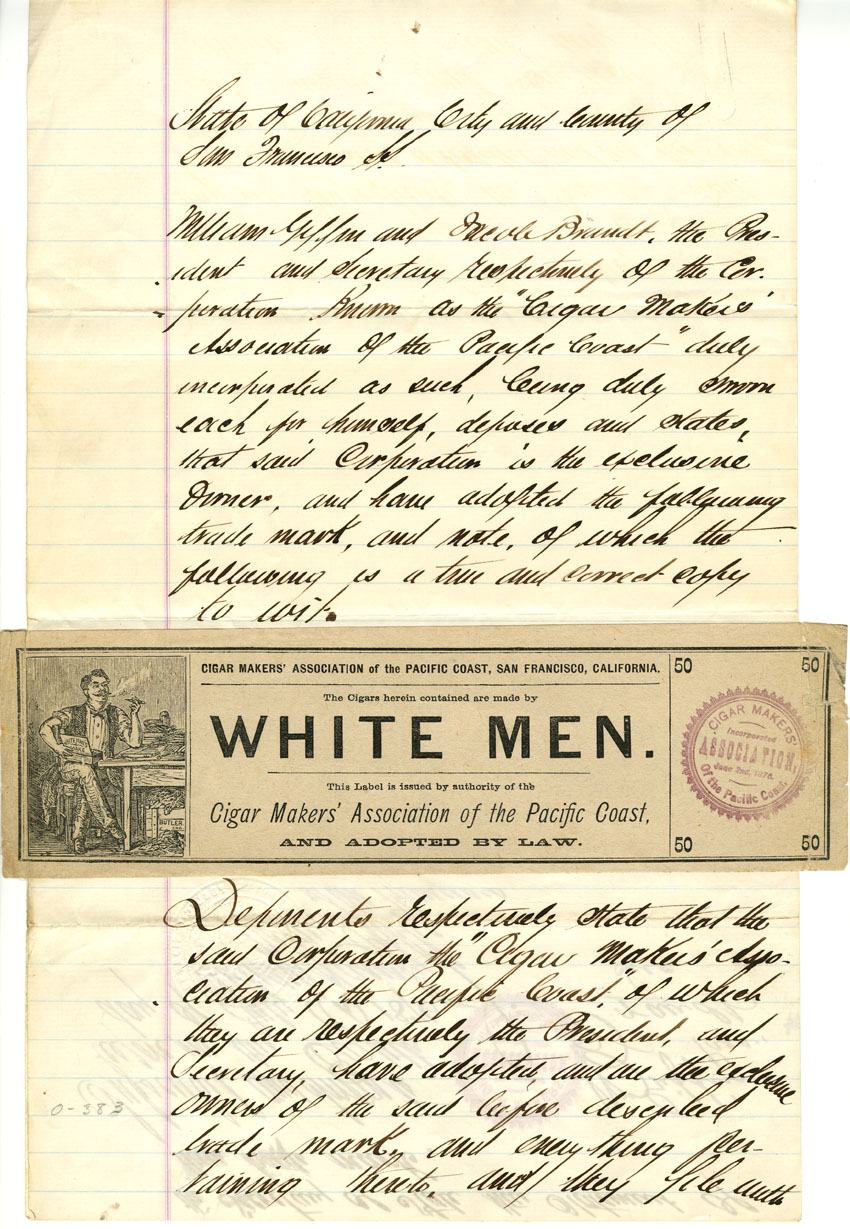 State of California City and County of
San Francisco SS.
William Giffin and Jacob Brandt, the Pres-
ident and Secretary respectively of the Cor.
poration Known as the "Cigar Makers'
Association of the Pacific Coast" duly
incorporated as such, being duly sworn
each for himself, deposes and states,
that said Corporation is the exclusive
Owner, and have adopted the following
trade mark, and note, of which the
following is a true and correct copy
to wit.
CIGAR MAKERS' ASSOCIATION of the PACIFIC COAST, SAN FRANCISCO, CALIFORNIA.
50 50
The Cigars herein contained are made by
WHITE MEN.
This Label is issued by authority of the
Cigar Makers' Association of the Pacific Coast,
AND ADOPTED BY LAW.
BUTLER
CIGAR MAKERS'
Incorporated
ASSOCIATION,
June 2nd, 1876.
Of the Pacific Coast
50 50
Deponents respectively state that the
said Corporation the "Cigar Makers' Asso-
ciation of the Pacific Coast," of which
they are respectively the President, and
Secretary, have adopted, and are the exclusive
owners of the said before described
trade mark, and everything per-
taining thereto, and they file with
0-383